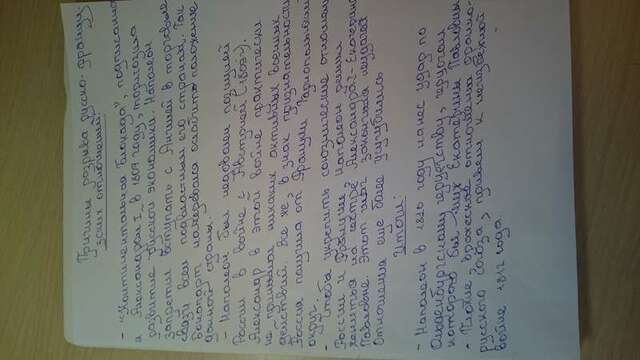 Причины разрыва русско-француз
ских отношений:
- "Континентальная блокада", подписанная
Александром I, в 1807 году, тормозила
развитие русской экономики. Наполеон
запретил вступать с Англией в торговые
связи всем подвластным его странам. Так
Бонапарт намеревался ослабить положение
данной страны.
- Наполеон был недоволен позицией
России в войне с Австрией (1809г).
Александр в этой войне практически
не принимал никаких активных военных
действий. Все же, в знак признательности
Россия получила от Франции Тарнопольский
округ.
- Чтобы укрепить союзнические отношения
России и Франции, Наполеон решил
жениться на сестре Александра I - Екатерине
Павловне. Этот шаг закончился неудачей
Отношения еще более усугубились
Итоги:
- Наполеон в 1810 году нанес удар по
Ольденбургскому герцогству, герцогом
которого был муж Екатерины Павловны
- Плохие, вражеские отношения франко-
русского союза, привели к неизбежной
войне 1812 года.